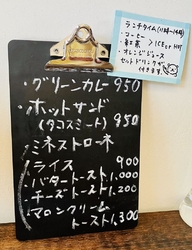 ランチタイム(11時〜14時)
・コーヒー
・紅茶 > ICE or HOT
・オレンジジュース
セットドリンクが
付きます
・グリーンカレー 950
・ホットサンド
(タコスミート) 950
・ミネストローネ
・ライス 900
・バタートースト 1,000
・チーズトースト 1,200
・マロンクリーム
トースト 1,300